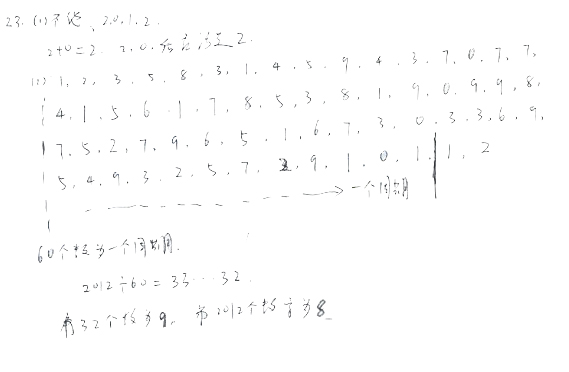 23. (1) 不能、2.0.1.2.
2+0=2. 2.0.后应该是2.
(2) 1, 2, 3, 5, 8, 3, 1, 4, 5, 9, 4, 3, 7, 0, 7, 7,
4, 1, 5, 6, 1, 7, 8, 5, 3, 8, 1, 9, 0, 9, 9, 8,
7, 5, 2, 7, 9, 6, 5, 1, 6, 7, 3, 0, 3, 3, 6, 9,
5, 4, 9, 3, 2, 5, 7, 2, 9, 1, 0, 1, 1, 2
一个周期
60个数为一个周期.
2012÷60=33…32.
第32个数为9, 第2012个数字为8